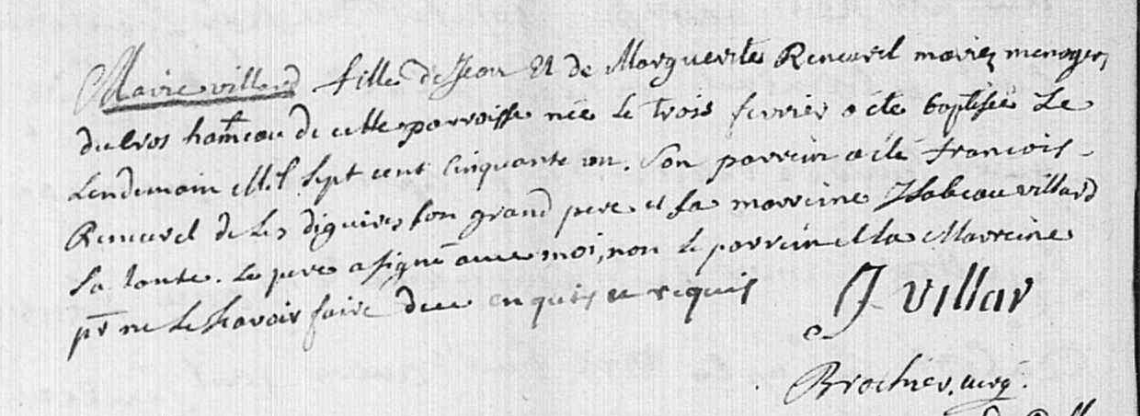 Marie villard fille de Jean Et de Marguerite Reneurel mariez menagers
du Gros hameau de cette parroisse née le trois fevrier a été baptisée Le
Lendemain Mil Sept cent Cinquante un. Son parrein a été francois
Reneurel de Les diguieres son grand pere et Sa marreine Isabeau villard
Sa tante. Le pere a signé avec moi, non le parrein Et la Marreine
pr ne le Scavoir faire de ce enquis et requis
J. villar
Brochier, curé.